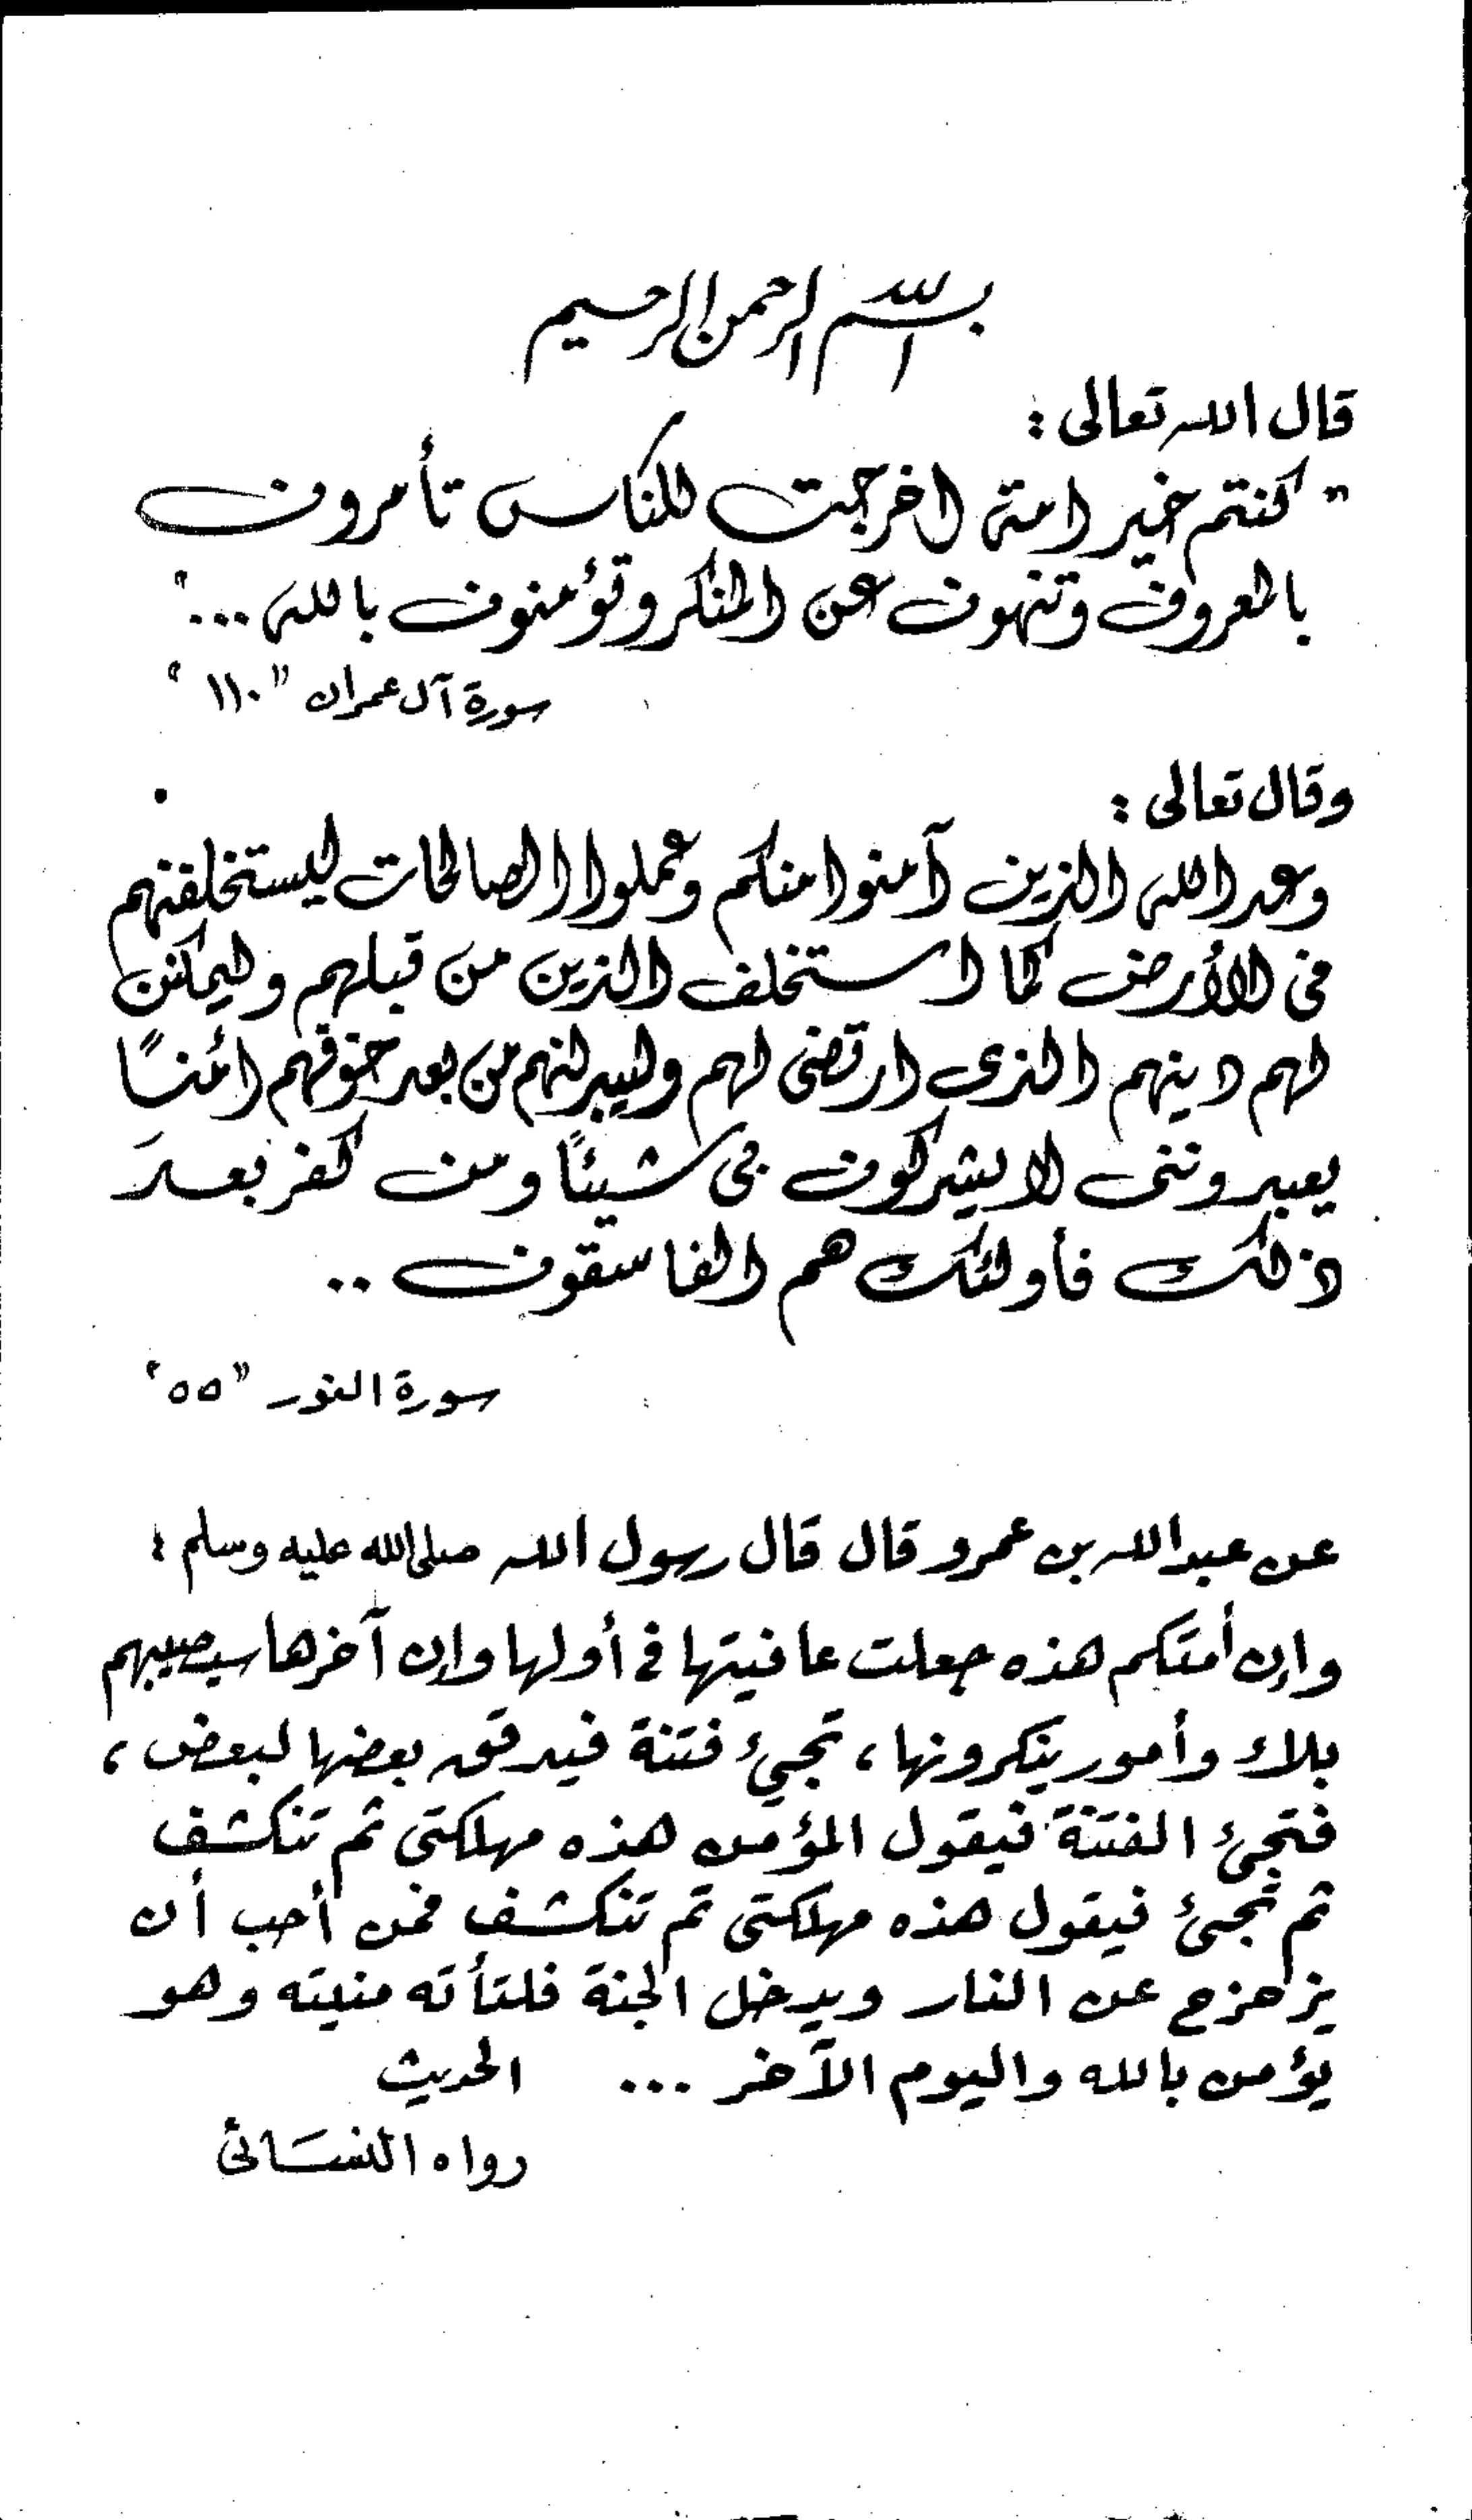 بسم الله الرحمن الرحيم
قال الله تعالى :
" كنتم خير امة اخرجت للناس تأمرون
بالمعروف وتنهون عن المنكر وتؤمنون بالله ... "
سورة آل عمران " ١١٠ "
وقال تعالى :
وعد الله الذين آمنوا منكم وعملوا الصالحات ليستخلفنهم
في الأرض كما استخلف الذين من قبلهم وليمكنن
لهم دينهم الذي ارتضى لهم وليبدلنهم من بعد خوفهم أمنًا
يعبدونني لا يشركون بي شيئًا ومن كفر بعدَ
ذلك فأولئك هم الفاسقون ..
سورة النور " ٥٥ "
عن عبد الله بن عمرو قال قال رسول الله صلى الله عليه وسلم :
وإن أمتكم هذه جعلت عافيتها في أولها وإن آخرها سيصيبهم
بلاء وأمور ينكرونها ، تجيء فتنة فيدقق بعضها لبعض ،
فتجئ الفتنة فيقول المؤمن هذه مهلكتي ثم تنكشف
ثم تجئ فيقول هذه مهلكتي ثم تنكشف فمن أحب أن
يزحزح عن النار ويدخل الجنة فلتأته منيته وهو
يؤمن بالله واليوم الآخر ... الحديث
رواه النسائي